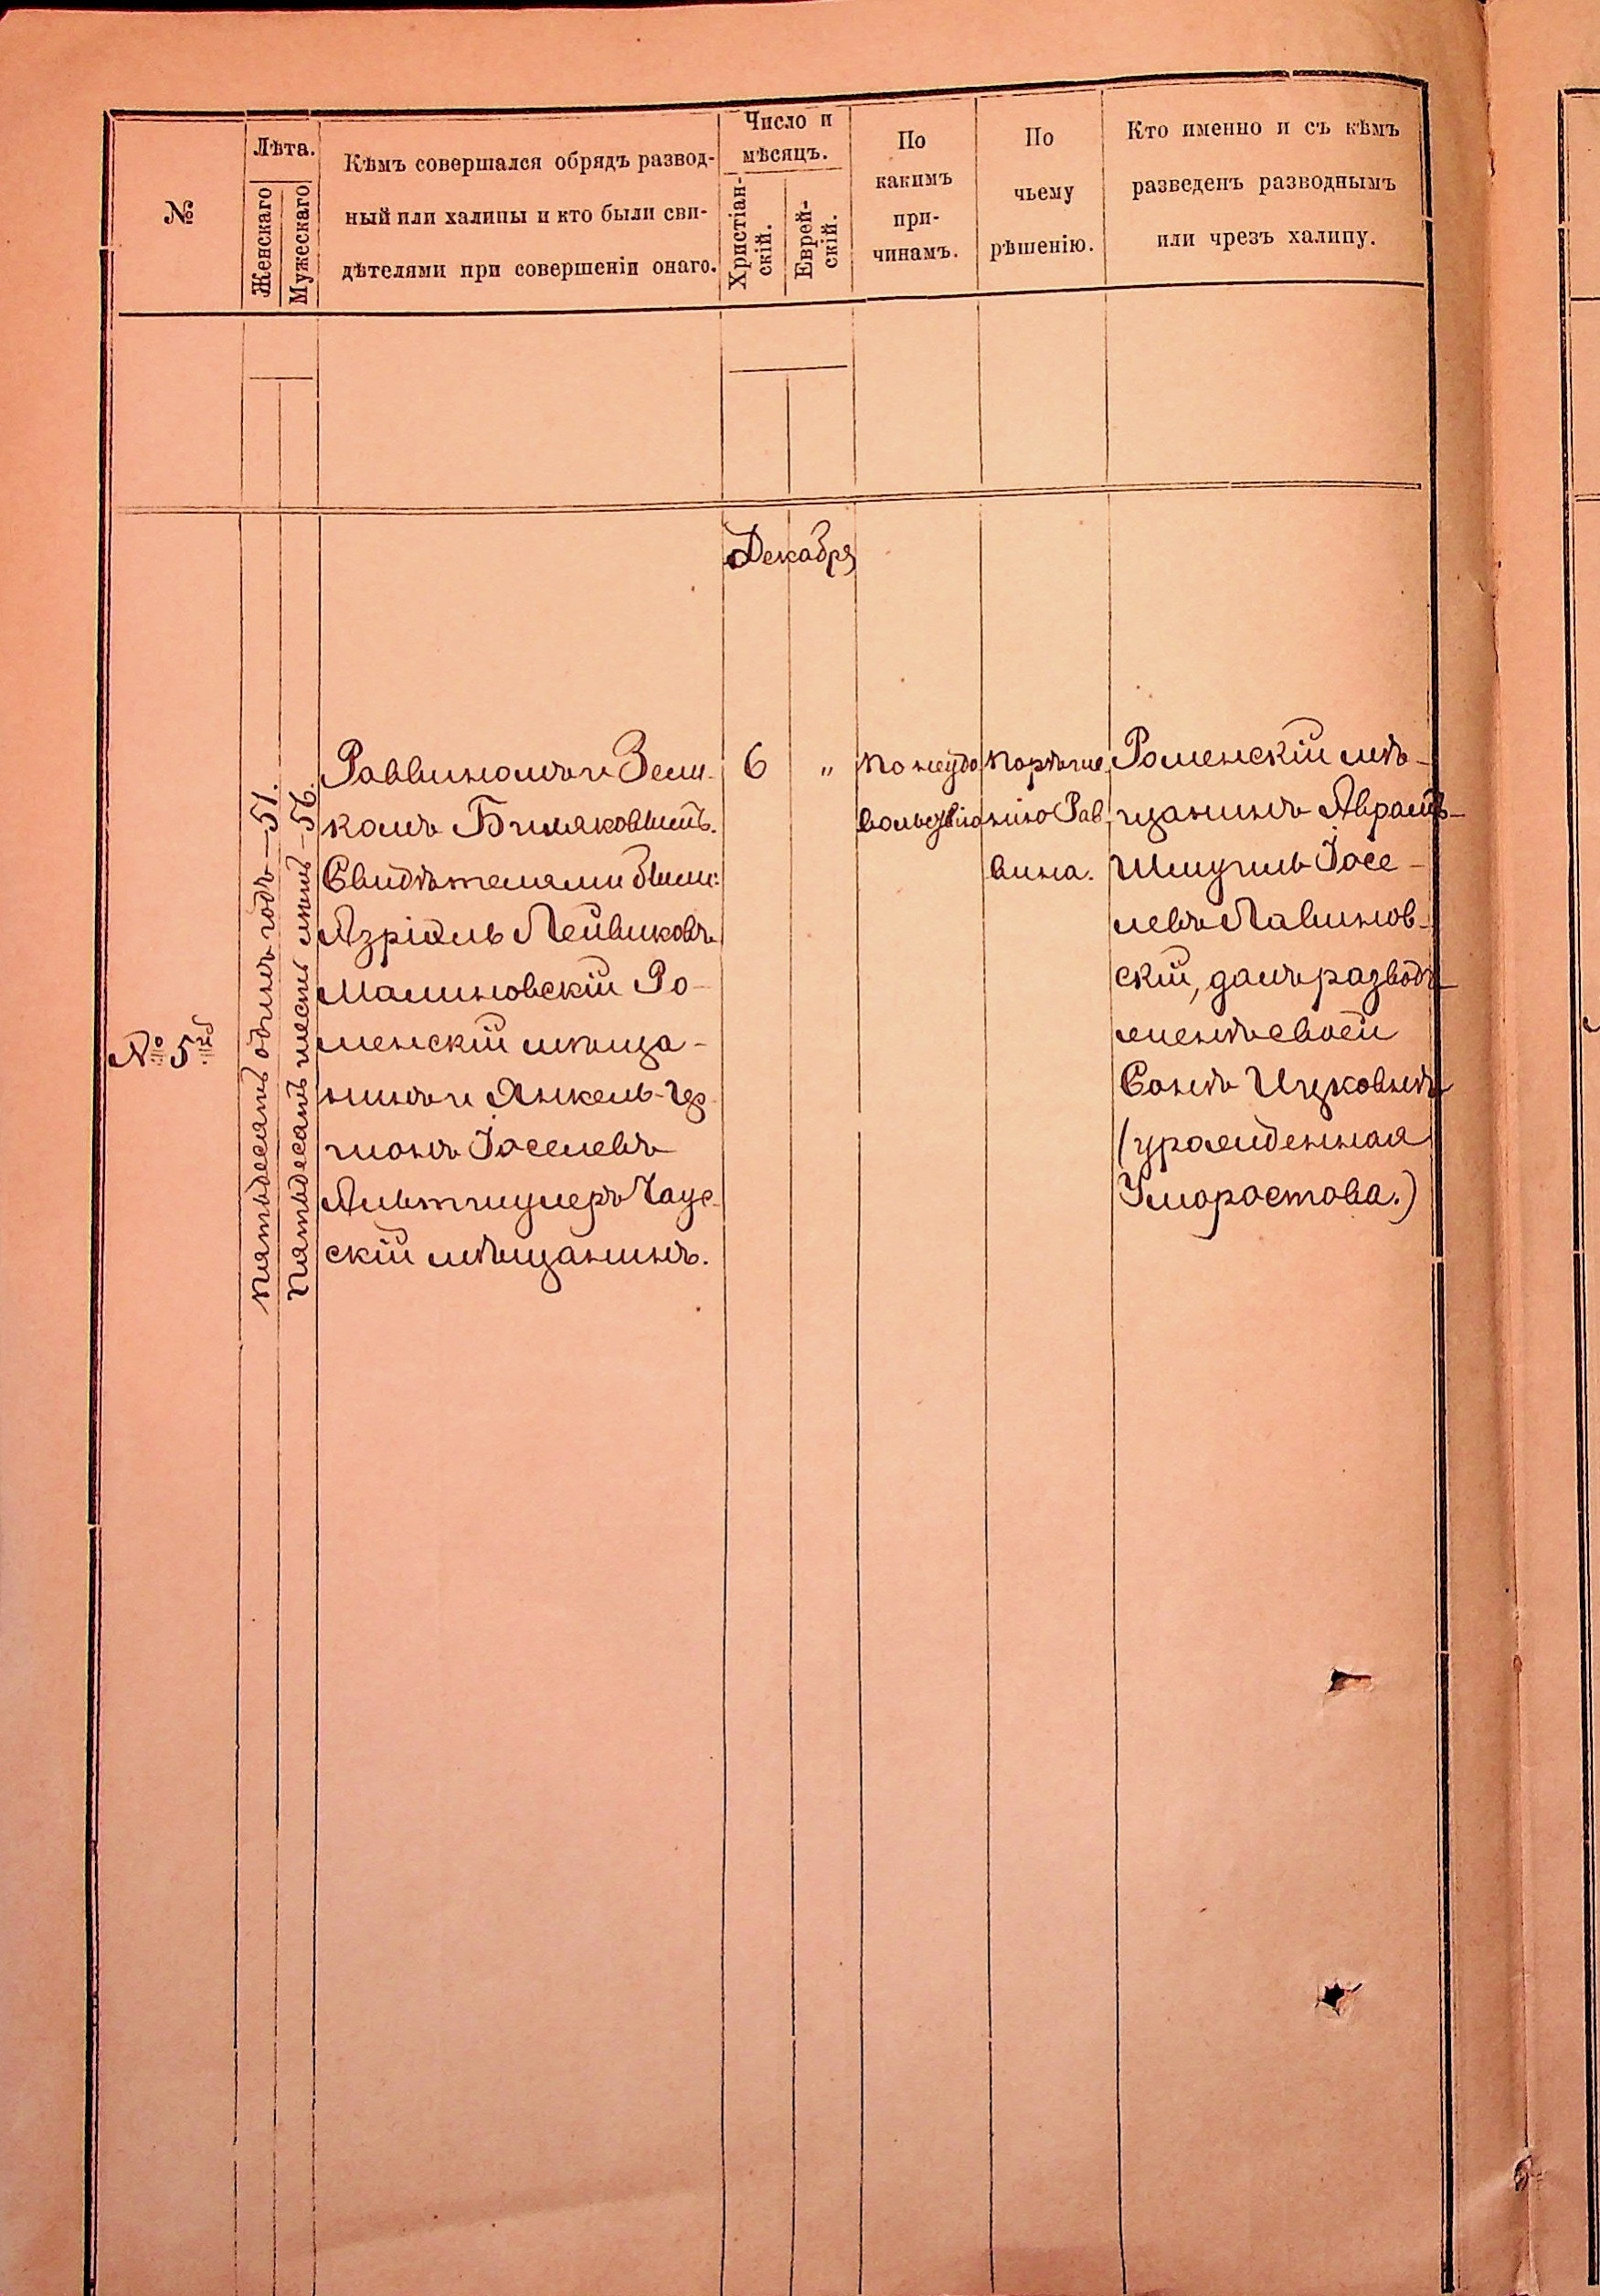 №
Лѣта.
Женскаго
Мужескаго
Кѣмъ совершался обрядъ развод-
ный или халицы и кто были сви-
дѣтелями при совершеніи онаго.
Число и
мѣсяцъ.
Христіан-
скій.
Еврей-
скій.
По
какимъ
при-
чинамъ.
По
чьему
рѣшенію.
Кто именно и съ кѣмъ
разведенъ разводнымъ
или чрезъ халицу.
Декабря
№ 5й
Пятьдесятъ одинъ годъ — 51.
Пятьдесятъ шесть лѣтъ — 56.
Раввиномъ и Зели-
комъ
Свидѣтелями были:
Азріель Лейвиковъ
Малиновскій Ро-
менскій мѣща-
нинъ и Янкель-Це-
ціонъ Іоселевъ
Альтшулеръ Чаус-
скій мѣщанинъ.
6
"
По неудо
вольствію
По рѣше
нію Рав
вина.
Роменскій мѣ-
щанинъ Аврамъ-
Шмуиль Іосе-
левъ Лавинов-
скій, далъ разводъ
женѣ своей
Сонѣ Ицковнѣ
(урожденная